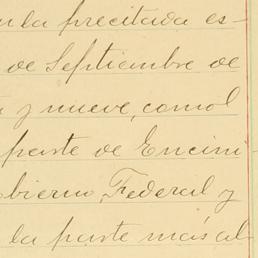 la precitada es-
de Septiembre de
y nueve, como l
parte de Encini
bierno Federal y
la parte más al